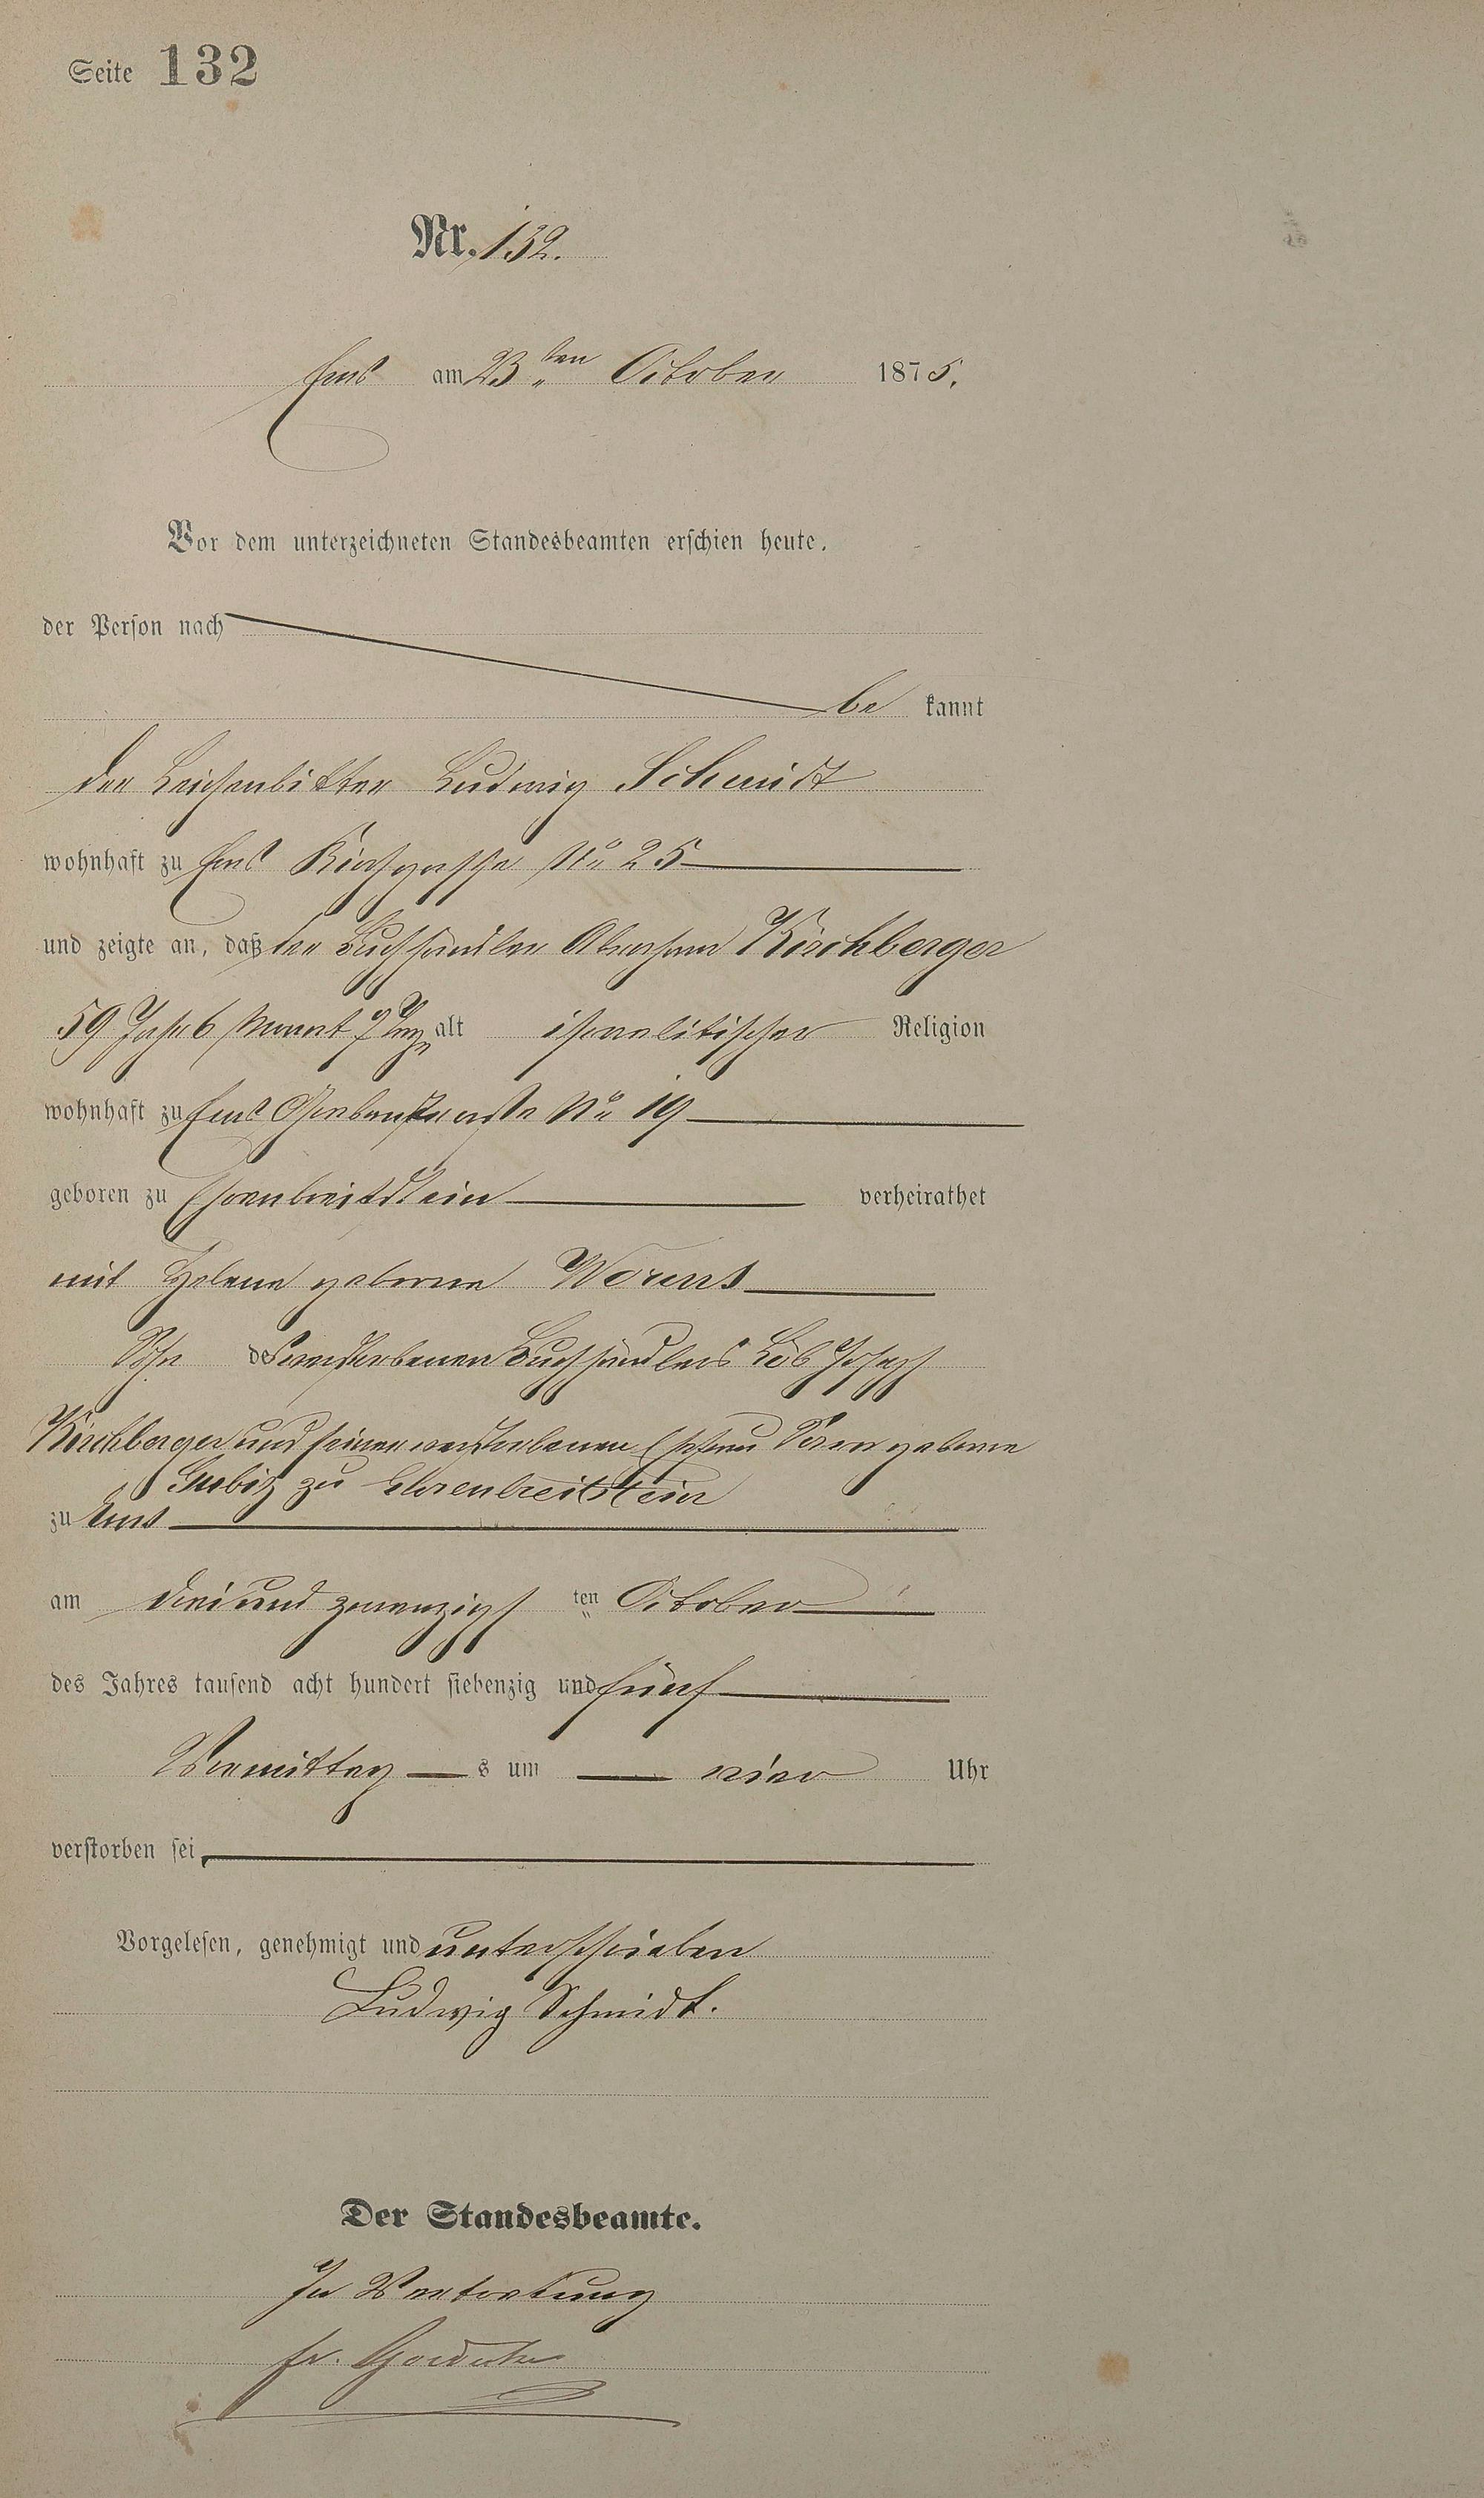 Seite 132
Nr. 132.
Ems am 23ten October 1875.
Vor dem unterzeichneten Standesbeamten erschien heute,
der Person nach
be kannt
der Leichenbitter Ludwig Schmidt
wohnhaft zu Ems Kirchgasse No 25
und zeigte an, daß der Buchhändler Abraham Kirchberger
59 Jahr 6 Monat 7 Tage alt israelitischer Religion
wohnhaft zu Ems Grabenstraße No 19
geboren zu Ehrenbreitstein verheirathet
mit Helene geborne Worms
Sohn des verstorbenen Buchhändlers Löb Joseph
Kirchberger und seiner verstorbenen Ehefrau geborne
zu Ehrenbreitstein
zu Ems
am drei und zwanzigsten October
des Jahres tausend acht hundert siebenzig und fünf
Vormittags um vier Uhr
verstorben sei,
Vorgelesen, genehmigt und unterschrieben
Ludwig Schmidt.
Der Standesbeamte.
In Vertretung